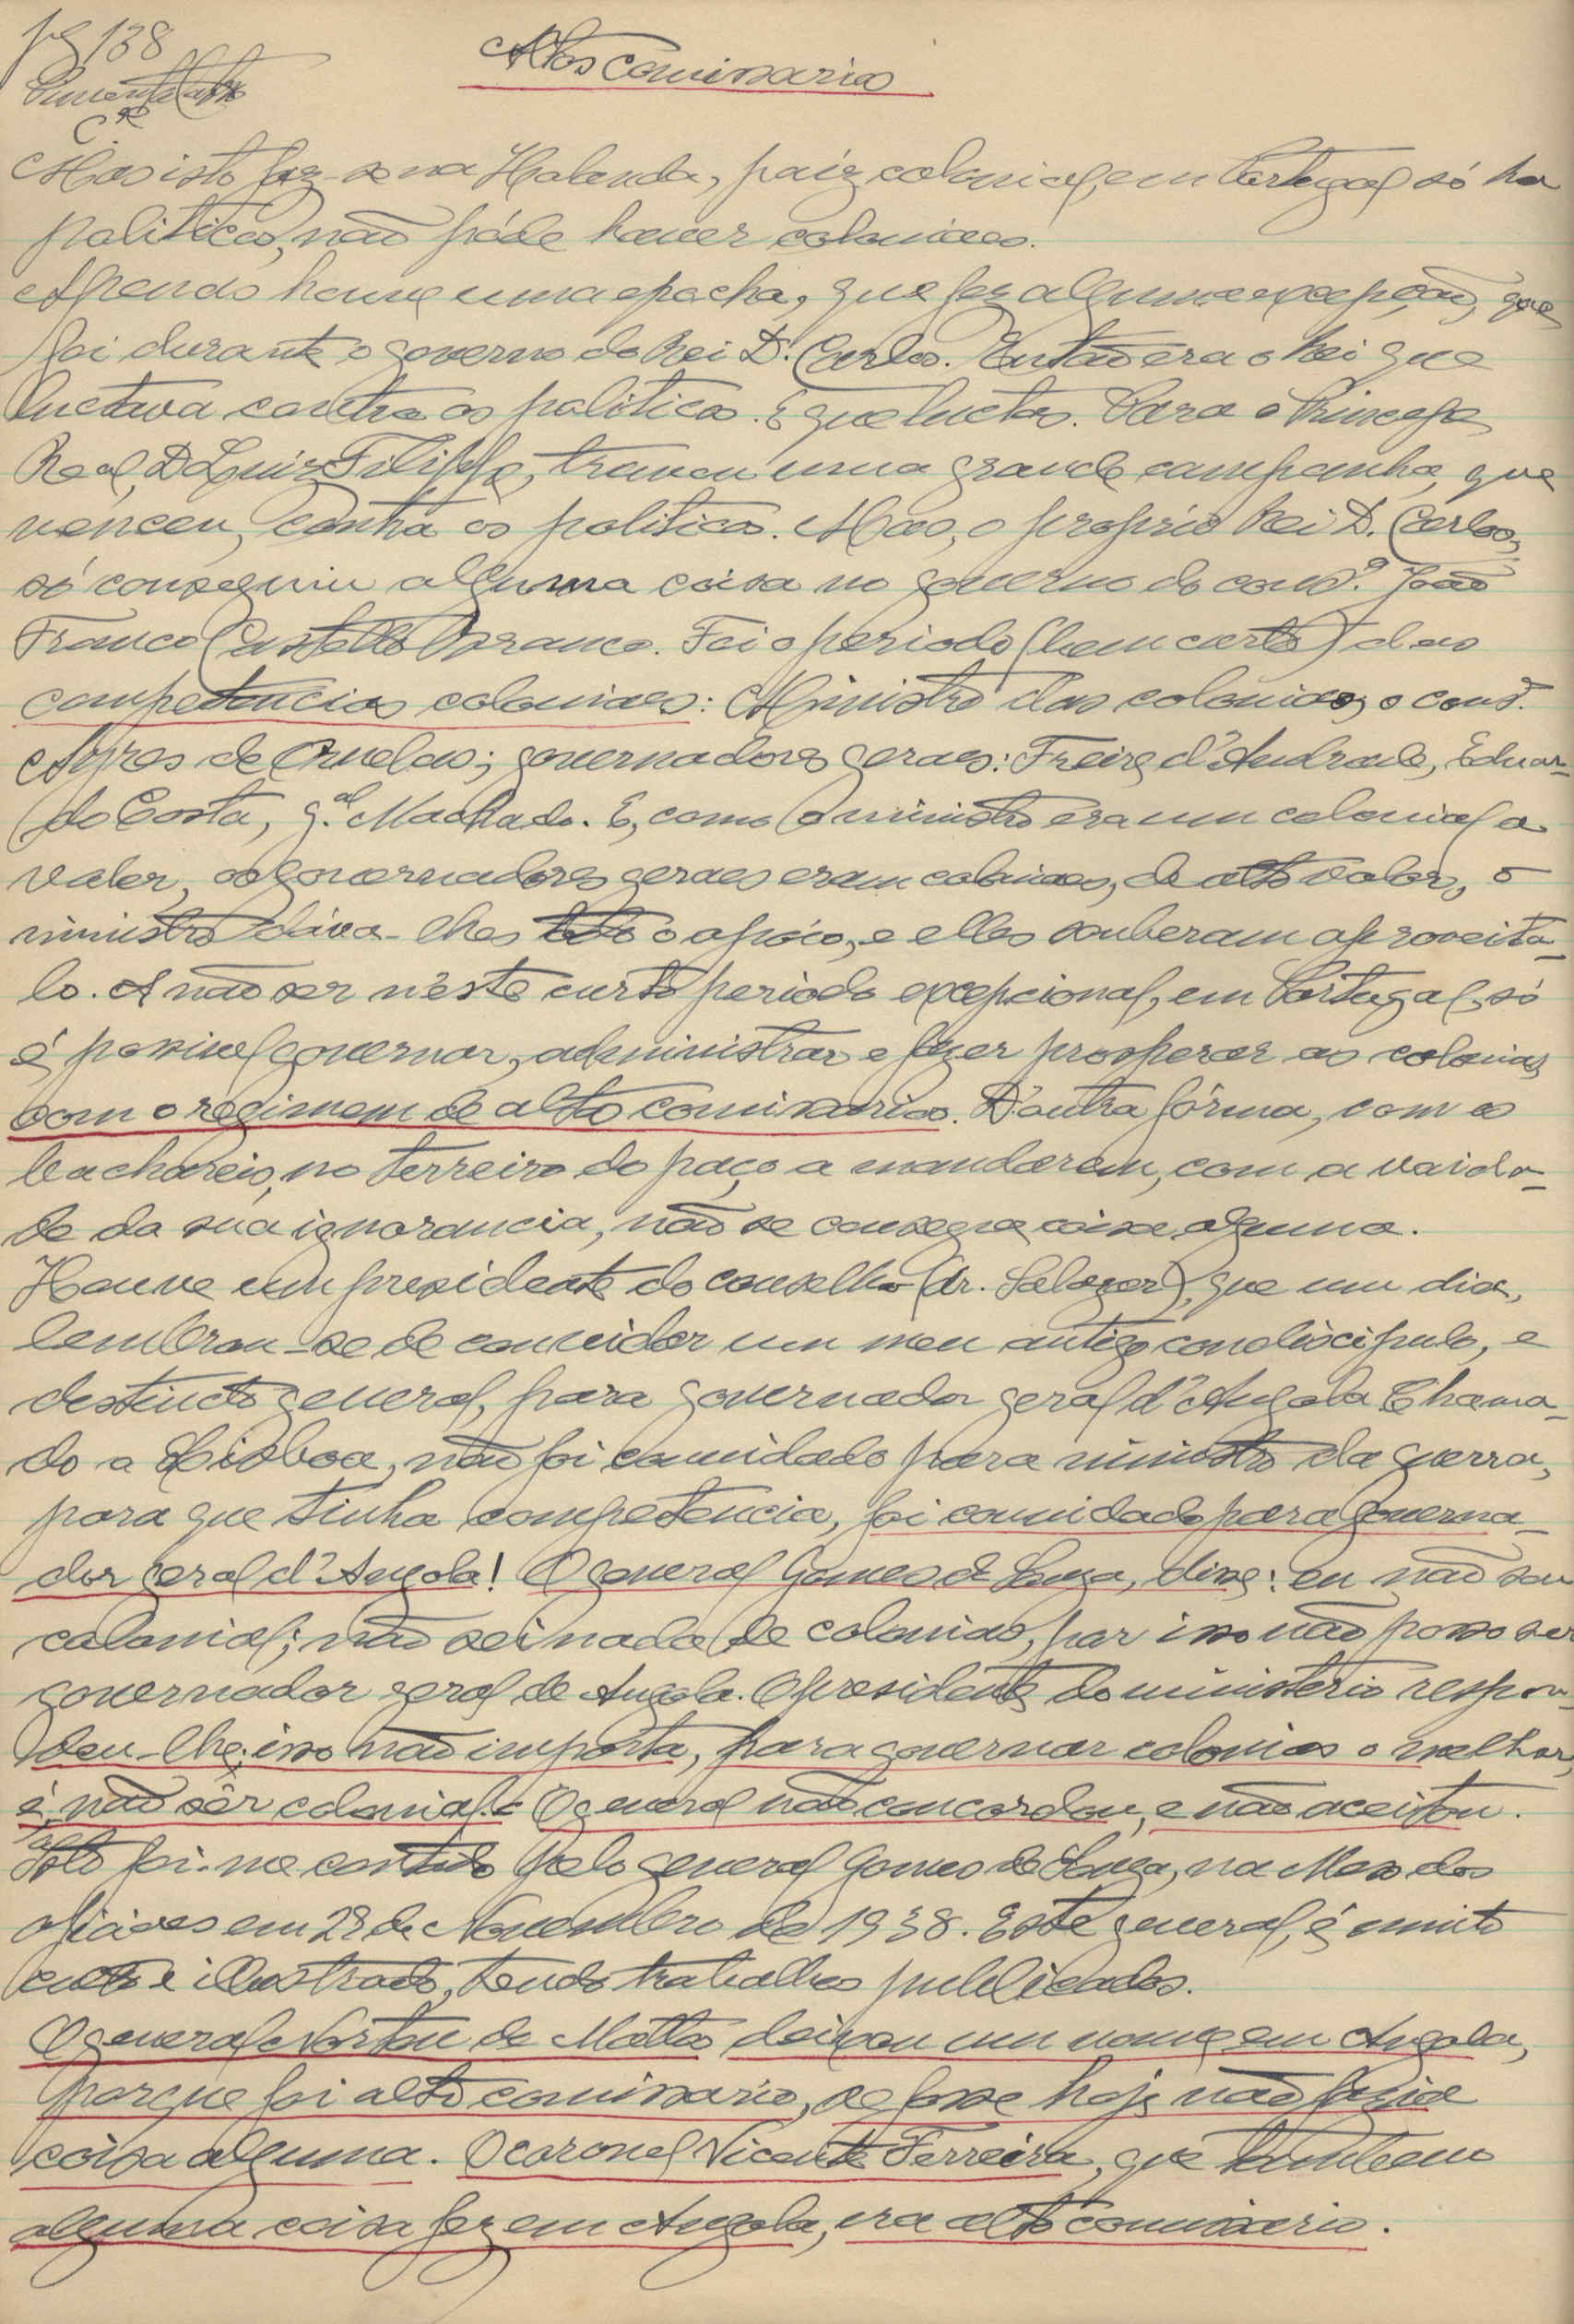 pg 138
Altos comissarios
Pimenta
Mas isto faz-se na Holanda, paiz colonial, em Portugal só ha
politicos, não póde haver coloniaes.
Apenas houve uma epocha, que fez alguma excepção, que
foi durante o governo do Rei D. Carlos. Então era o Rei que
luctava contra os politicos. E que luctas. Para o Principe
Real, D. Luiz Filippe, travou uma grande campanha, que
venceu, contra os politicos. Mas, o proprio Rei D. Carlos,
só conseguiu alguma coisa no governo do consº. João
Franco Castello Branco. Foi o periodo (bem curto) das
competencias coloniaes: Ministro das colonias, o cons.
Ayres de Ornelas; governadores geraes: Freire d'Andrade, Eduar-
do Costa, g.al Machado. E, como o ministro era um colonial a
valer, os governadores geraes eram coloniaes, de alto valor, o
ministro dáva-lhes todo o apóio, e elles souberam aproveita-
lo. A não ser n'este curto periodo excepcional, em Portugal, só
é possivel governar, administrar e fazer prosperar as colonias
com o regimem de altos comissarios. D'outra fórma, com os
bachareis, no terreiro do paço a mandarem, com a vaida-
de da sua ignorancia, não se consegue coisa alguma.
Houve um presidente do conselho (dr. Salazar), que um dia,
lembrou-se de convidar um meu antigo condiscipulo, e
destincto general, para governador geral d'Angola. Chama-
do a Lisboa, não foi convidado para ministro da guerra,
para que tinha competencia, foi convidado para governa-
dor geral d'Angola! O general Gomes de Souza, disse: eu não sou
colonial; não sei nada de colonias, por isso não posso ser
governador geral de Angola. O presidente do ministerio respon-
deu-lhe: isso não importa, para governar colonias o melhor,
é não sêr colonial. O general não concordou, e não aceitou.
Isto foi-me contado pelo general Gomes de Souza, na Mess dos
oficiaes em 29 de Novembro de 1938. Este general, é muito
culto e illustrado, tendo trabalhos publicados.
O general Norton de Mattos deixou um nome em Angola,
porque foi alto comissario, se fosse hoje não fazia
coisa alguma. O coronel Vicente Ferreira, que tambem
alguma coisa fez em Angola, era alto comissario.